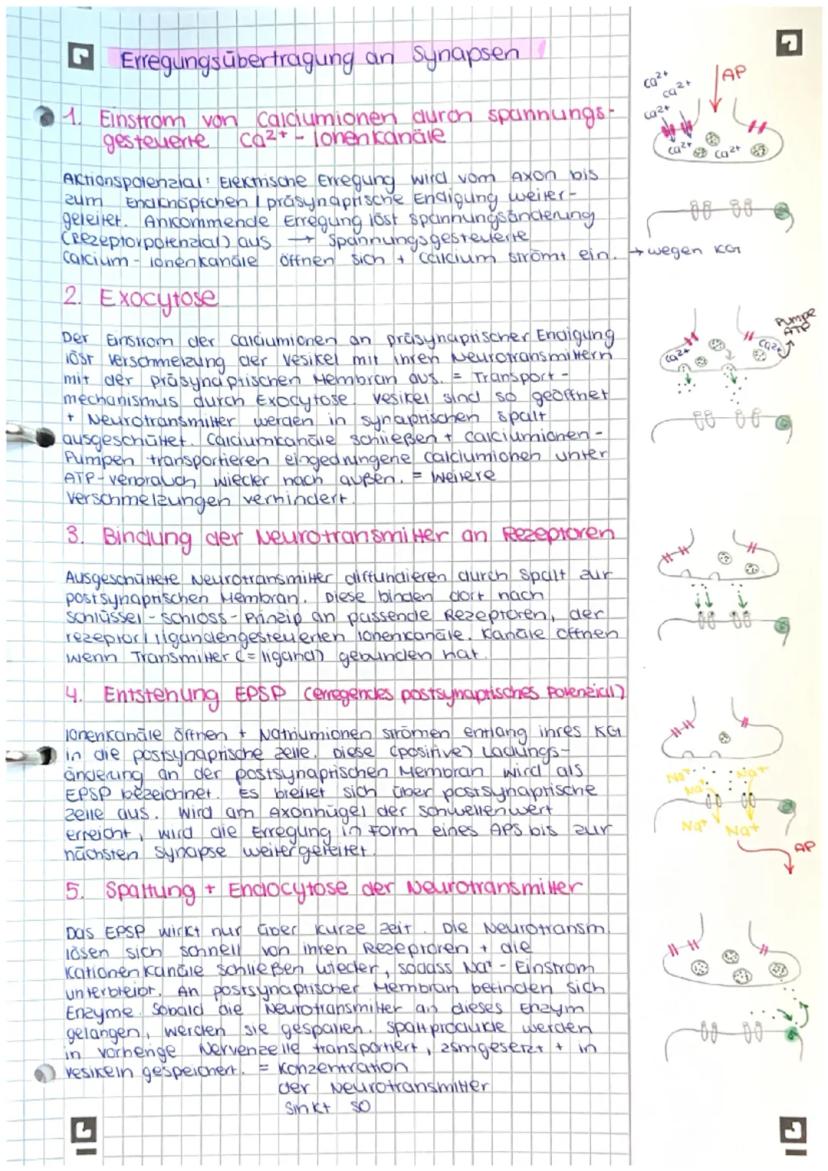 Erregungsübertragung an Synapsen
1. Einstrom von Calciumionen durch spannungs-
gesteuerte Ca²⁺-Ionenkanäle
Aktionspotenzial: Elektrische Erregung wird vom Axon bis
zum Endknöpfchen / präsynaptische Endigung weiter-
geleitet. Ankommende Erregung löst Spannungsänderung
(Rezeptorpotenzial) aus → Spannungsgesteuerte
Calcium-Ionenkanäle öffnen sich + Calcium strömt ein. → wegen KG
Ca²⁺
Ca²⁺
Ca²⁺
AP
Ca²⁺
Ca²⁺
2. Exocytose
Der Einstrom der Calciumionen an präsynaptischer Endigung
löst Verschmelzung der Vesikel mit ihren Neurotransmittern
mit der präsynaptischen Membran aus. = Transport-
mechanismus durch Exocytose. Vesikel sind so geöffnet
+ Neurotransmitter werden in synaptischen Spalt
ausgeschüttet. Calciumkanäle schließen + Calciumionen-
Pumpen transportieren eingedrungene Calciumionen unter
ATP-Verbrauch wieder nach außen. = Weitere
Verschmelzungen verhindert.
Pumpe
ATP
Ca²⁺
Ca²⁺
3. Bindung der Neurotransmitter an Rezeptoren
Ausgeschüttete Neurotransmitter diffundieren durch Spalt zur
postsynaptischen Membran. Diese binden dort nach
Schlüssel-Schloss-Prinzip an passende Rezeptoren, der
rezeptor/ligandengesteuerten Ionenkanäle. Kanäle öffnen
wenn Transmitter (=ligand) gebunden hat.
4. Entstehung EPSP (erregendes postsynaptisches Potenzial)
Ionenkanäle öffnen + Natriumionen strömen entlang ihres KG
in die postsynaptische Zelle. Diese (positive) Ladungs-
änderung an der postsynaptischen Membran wird als
EPSP bezeichnet. Es breitet sich über postsynaptische
Zelle aus. Wird am Axonhügel der Schwellenwert
erreicht, wird die Erregung in Form eines APs bis zur
nächsten Synapse weitergeleitet.
Na⁺
Na⁺
Na⁺
Na⁺
Na⁺
AP
5. Spaltung + Endocytose der Neurotransmitter
Das EPSP wirkt nur über kurze Zeit. Die Neurotransm.
lösen sich schnell von ihren Rezeptoren + die
Kationenkanäle schließen wieder, sodass Na⁺-Einstrom
unterbleibt. An postsynaptischer Membran befinden sich
Enzyme. Sobald die Neurotransmitter an dieses Enzym
gelangen, werden sie gespalten. Spaltprodukte werden
in vorherige Nervenzelle transportiert, zsmgesetzt + in
Vesikeln gespeichert. = Konzentration
der Neurotransmitter
sinkt so